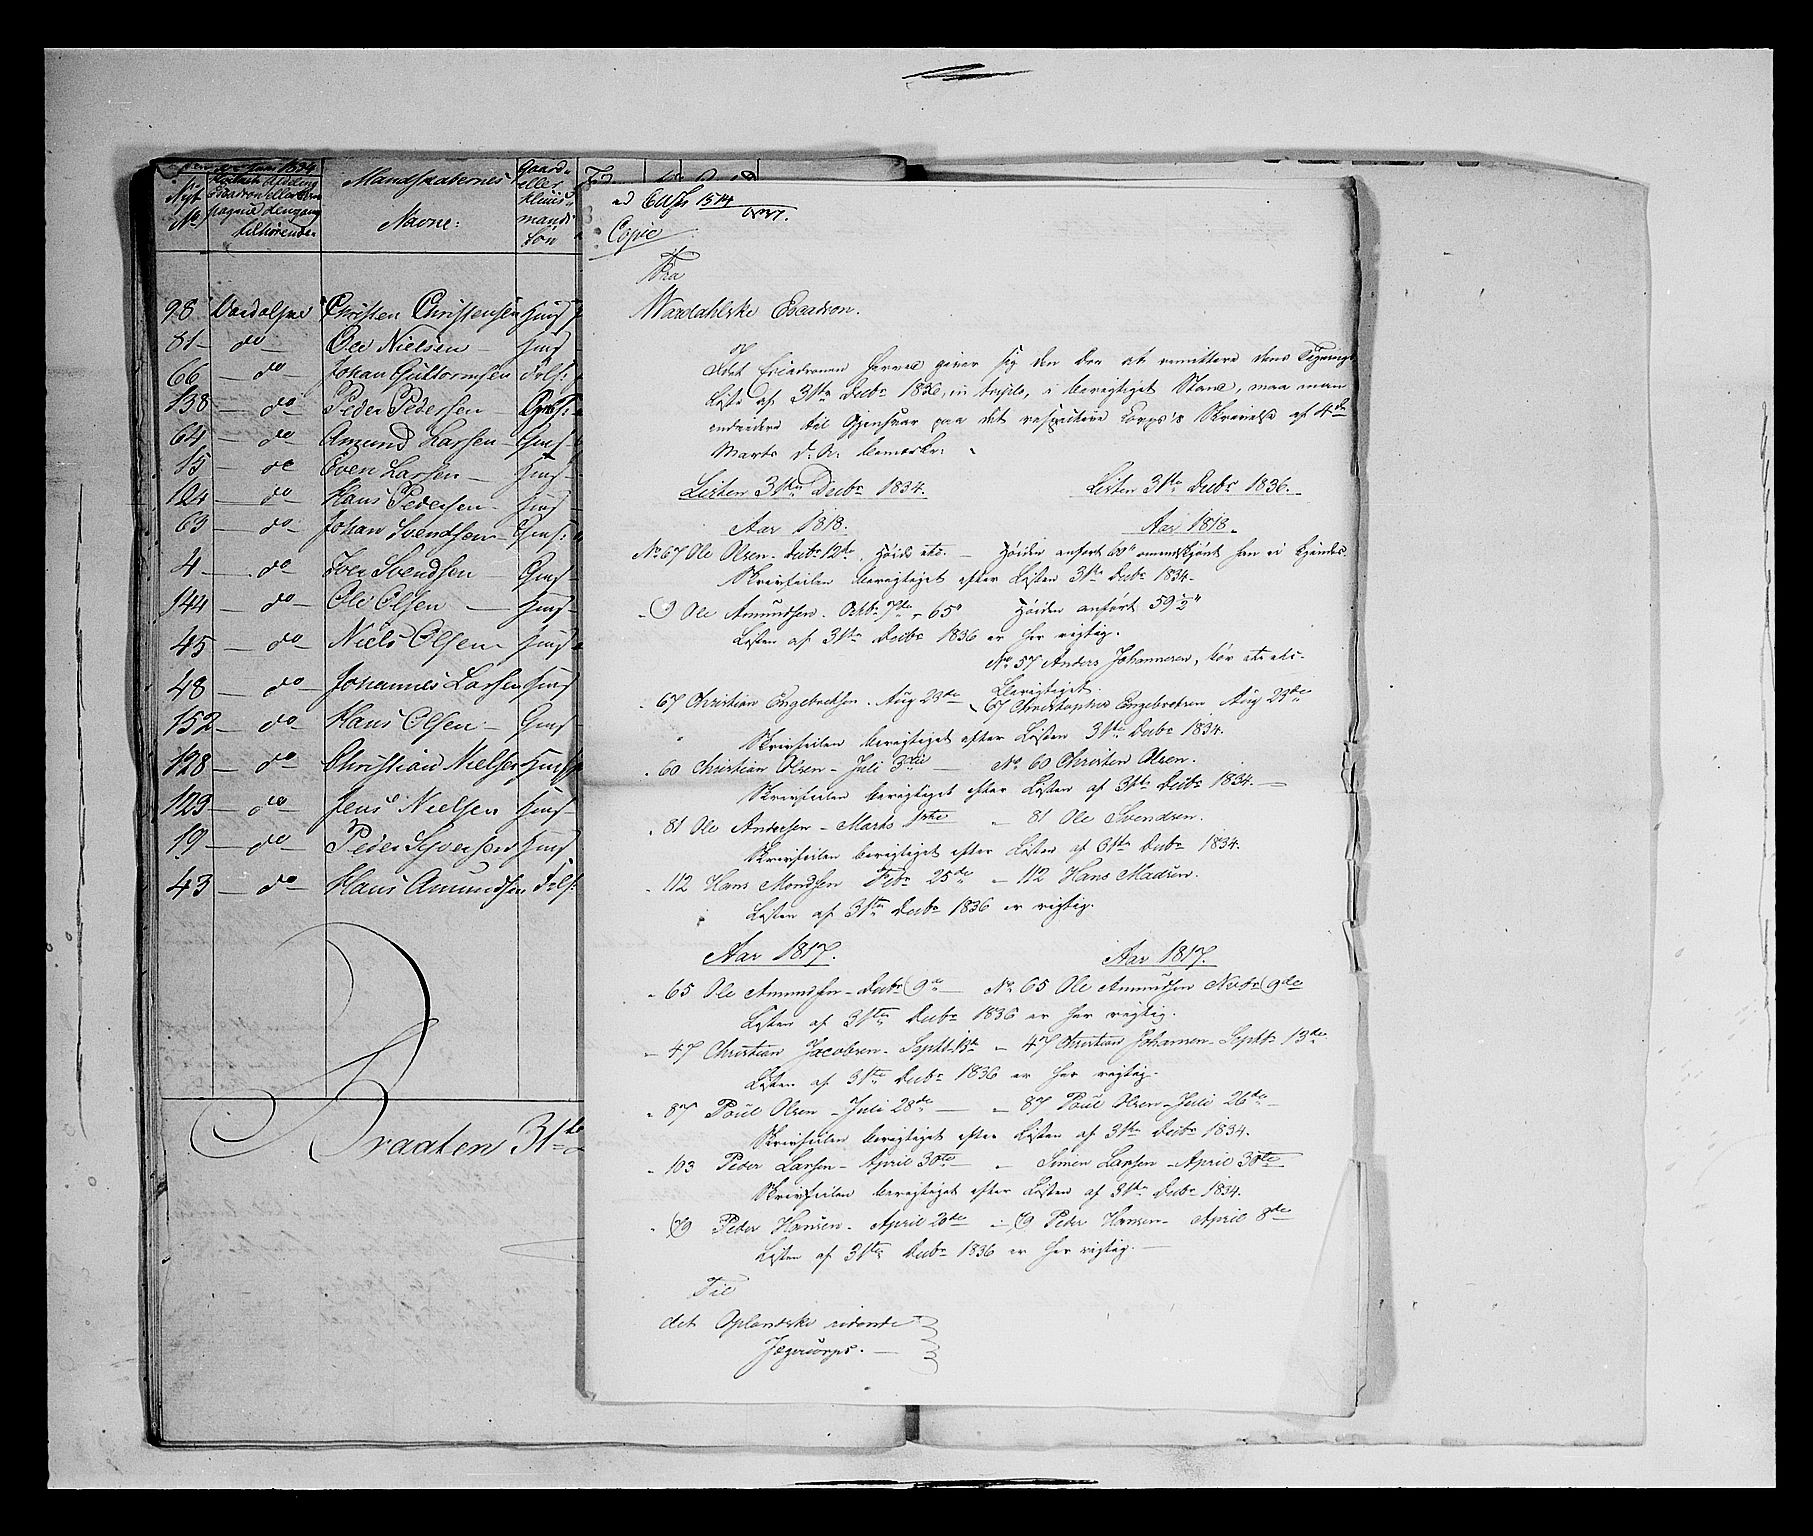 1834
Nyt
No
tilhørende
Mandskabernes
Navne:
Gaard-
eller
Huus-
mands
Søn
98 Vardalske Christen Christensen Huus
81 - do - Ole Nielsen - Huus
66 - do - Johan Guttormsen
138 - do - Peder Pedersen -
64 - do Amund Larsen - Huus
15 - do Even Larsen - Huus
124 - do Hans Pedersen - Huus
63 - do - Johan Svendsen - Huus
4 - do - Iver Svendsen -
144 - do - Ole Olsen - Huus
45 - do - Niels Olsen - Huus
48 - do - Johannes Larsen Huus
152 - do - Hans Olsen -
128 - do - Christian Nielsen Huus
129 - do - Jens Nielsen - Huus
19 - do - Peder Syversen Huus
43 - do - Hans Amundsen
Braaten 31te
Copie
Fra
Wardahlske Escadron.
Idet Escadronen herved giver sig den Ære at remittere dens Tegnings
Liste af 31te Decbr 1836, in triplo, i berigtiget Stand, maa man
endvidere til Gjensvar paa det respective Corps's Skrivelse af 4de
Marts d. A. bemærke:
Listen 31te Decbr 1834. Listen 31te Decbr 1836.
Aar 1818. Aar 1818.
No 67 Ole Olsen - Decbr 12te, Høide etc. - Høiden anført 60" omendskjønt han ei kjendes
Skrivfeilen berigtiget efter Listen 31te Decbr 1834.
- 9 Ole Amundsen. Octbr 7de - 65" Høiden anført 59½"
Listen af 31te Decbr 1836 er her rigtig.
No 57 Anders Johannesen, bør etc etc.
Berigtiget.
- 67 Christian Engebretsen. Aug 23de - 67 Christopher Engebretsen Aug 23de
Skrivfeilen berigtiget efter Listen 31te Decbr 1834.
- 60 Christian Olsen - Juli 3die - No 60 Christen Olsen.
Skrivfeilen berigtiget efter Listen af 31te Decbr 1834. -
- 81 Ole Andersen - Marts 1ste - 81 Ole Svendsen.
Skrivfeilen berigtiget efter Listen af 31te Decbr 1834.
- 112 Hans Mondsen Febr 25de - 112 Hans Madsen.
Listen af 31te Decbr 1836 er rigtig.
Aar 1817. Aar 1817.
- 65 Ole Amundsen - Decbr 9de - No 65 Ole Amundsen Novbr 9de
Listen af 31te Decbr 1836 er her rigtig.
- 47 Christian Jacobsen - Septbr 13de - 47 Christian Johansen - Septbr 13de
Listen af 31te Decbr 1836 er her rigtig.
- 87 Poul Olsen - Juli 28de - 87 Poul Olsen - Juli 26de
Skrivfeilen berigtiget efter Listen af 31te Decbr 1834.
- 103 Peder Larsen - April 30te - Simen Larsen - April 30te
Skrivfeilen berigtiget efter Listen af 31te Decbr 1834.
- 79 Peder Hansen - April 20de - 79 Peder Hansen - April 8de
Listen af 31te Decbr 1836 er her rigtig. -
Til
det Oplandske ridende
Jægercorps. -